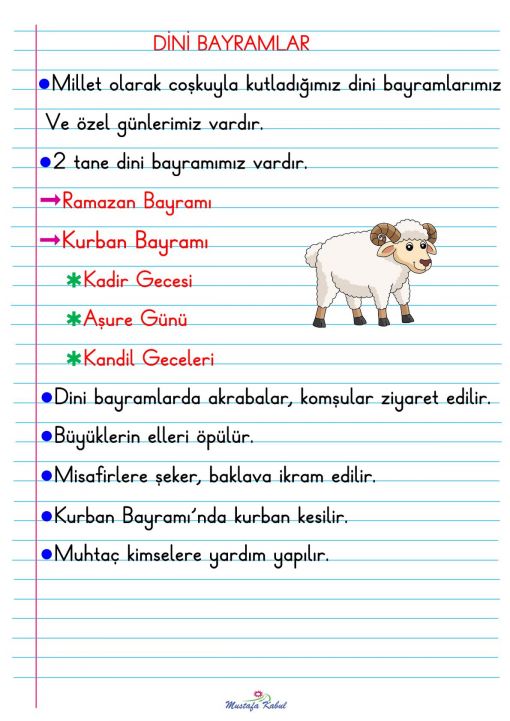 DİNİ BAYRAMLAR
●Millet olarak coşkuyla kutladığımız dini bayramlarımız
Ve özel günlerimiz vardır.
●2 tane dini bayramımız vardır.
→Ramazan Bayramı
→Kurban Bayramı
✱Kadir Gecesi
✱Aşure Günü
✱Kandil Geceleri
●Dini bayramlarda akrabalar, komşular ziyaret edilir.
●Büyüklerin elleri öpülür.
●Misafirlere şeker, baklava ikram edilir.
●Kurban Bayramı'nda kurban kesilir.
●Muhtaç kimselere yardım yapılır.
Mustafa Kabul